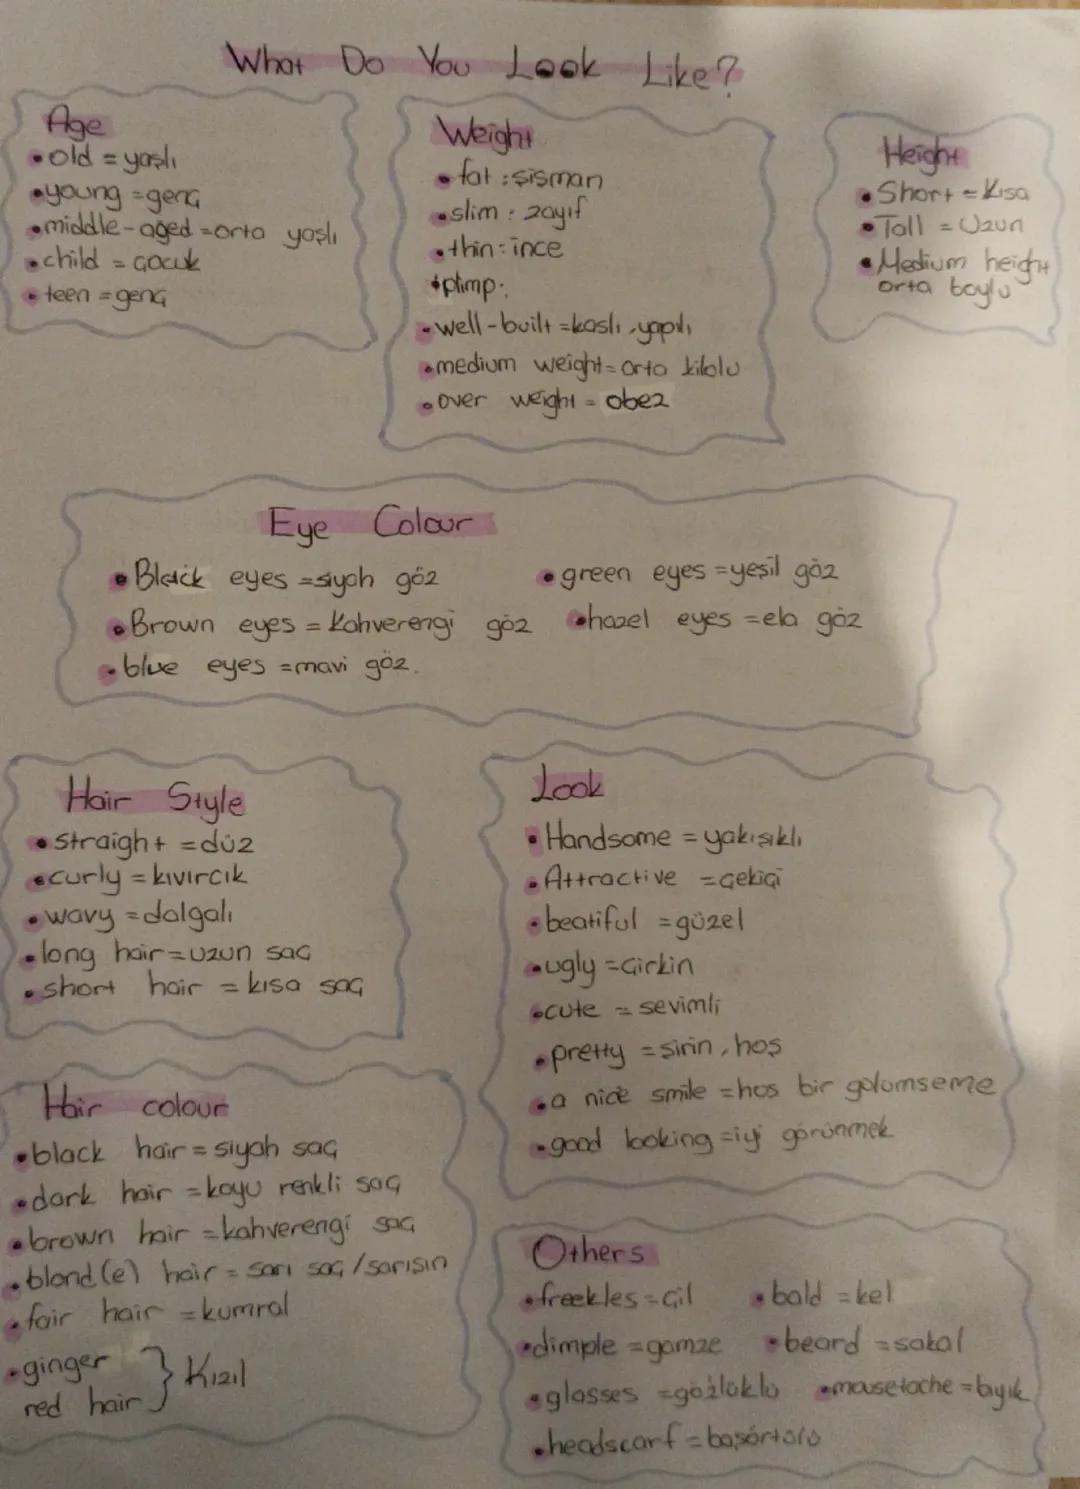 What Do You Look Like?
Age
• old = yaşlı
• young = genç
• middle-aged = orta yaşlı
• child = çocuk
• teen = genç
Weight
• fat : şişman
• slim : zayıf
• thin : ince
• plimp :
• well-built = kaslı, yapılı
• medium weight = orta kilolu
• over weight = obez
Height
• Short = Kısa
• Tall = Uzun
• Medium height
orta boylu
Eye Colour
• Black eyes = siyah göz
• Brown eyes = Kahverengi göz
• blue eyes = mavi göz.
• green eyes = yeşil göz
• hazel eyes = ela göz
Hair Style
• straight = düz
• curly = kıvırcık
• wavy = dalgalı
• long hair = uzun saç
• short hair = kısa saç
Look
• Handsome = yakışıklı
• Attractive = çekici
• beatiful = güzel
• ugly = çirkin
• cute = sevimli
• pretty = şirin, hoş
• a nice smile = hos bir gülümseme
• good looking = iyi görünmek
Hair colour
• black hair = siyah saç
• dark hair = koyu renkli saç
• brown hair = kahverengi saç
• blond(e) hair = sarı saç / sarısın
• fair hair = kumral
• ginger
red hair } Kızıl
Others
• freekles = çil
• bald = kel
• dimple = gamze
• beard = sakal
• glasses = gözlüklü
• mousetache = bıyık
• headscarf = başörtülü